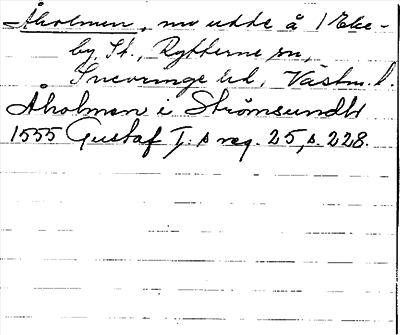 Åholmen, nu udde å 1 Eke-
by, St., Rytterne sn,
Snevringe hd, Västm. l.
Åholmen i Strömsundh
1555 Gustaf I:s reg. 25, s. 228.